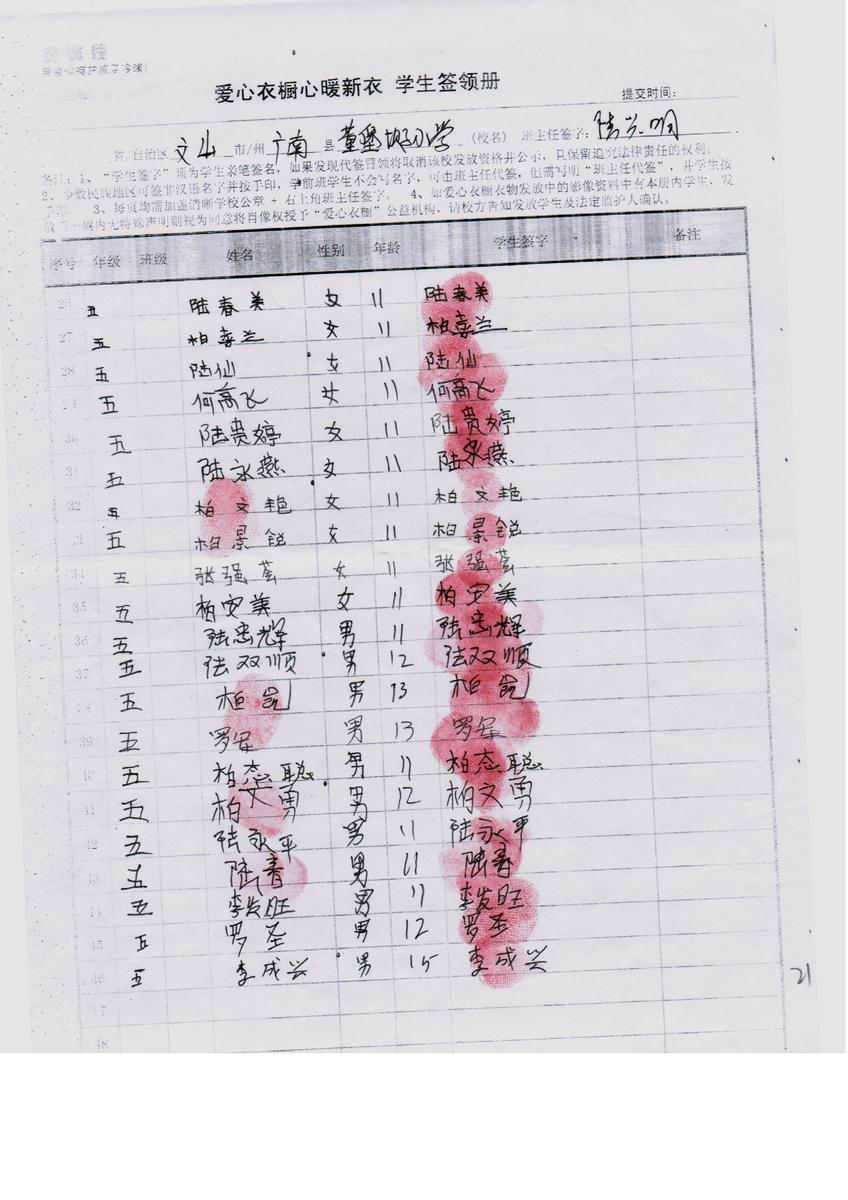 爱心衣橱心暖新衣 学生签领册
提交时间：
省/自治区 文山 市/州 广南 县 董堡 小学 (校名) 班主任签字：陆兴明
备注：1、“学生签字”项为学生亲笔签名，如果发现代签冒领将取消该校发放资格并公示，且保留追究法律责任的权利。
2、少数民族地区可签非汉语名字并按手印，学前班学生不会写名字，可由班主任代签，但需写明“班主任代签”，并学生按
手印。 3、每页均需加盖清晰学校公章 + 右上角班主任签字。 4、如爱心衣橱衣物发放中的影像资料中有本册内学生，发
放后一周内无特殊声明则视为同意将肖像权授予“爱心衣橱”公益机构，请校方告知发放学生及法定监护人确认。
序号 年级 班级 姓名 性别 年龄 学生签字 备注
26 五 陆春美 女 11 陆春美
27 五 柏喜兰 女 11 柏喜兰
28 五 陆仙 女 11 陆仙
29 五 何高飞 女 11 何高飞
30 五 陆贵婷 女 11 陆贵婷
31 五 陆永燕 女 11 陆永燕
32 五 柏文艳 女 11 柏文艳
33 五 柏景锐 女 11 柏景锐
34 五 张强荟 女 11 张强荟
35 五 柏安美 女 11 柏安美
36 五 陆忠辉 男 11 陆忠辉
37 五 陆双顺 男 12 陆双顺
38 五 柏 男 13 柏
39 五 罗军 男 13 罗军
40 五 柏态聪 男 11 柏态聪
41 五 柏文勇 男 12 柏文勇
42 五 陆永平 男 11 陆永平
43 五 陆青 男 11 陆青
44 五 李发旺 男 11 李发旺
45 五 罗圣 男 12 罗圣
46 五 李成兴 男 15 李成兴
47
48
21